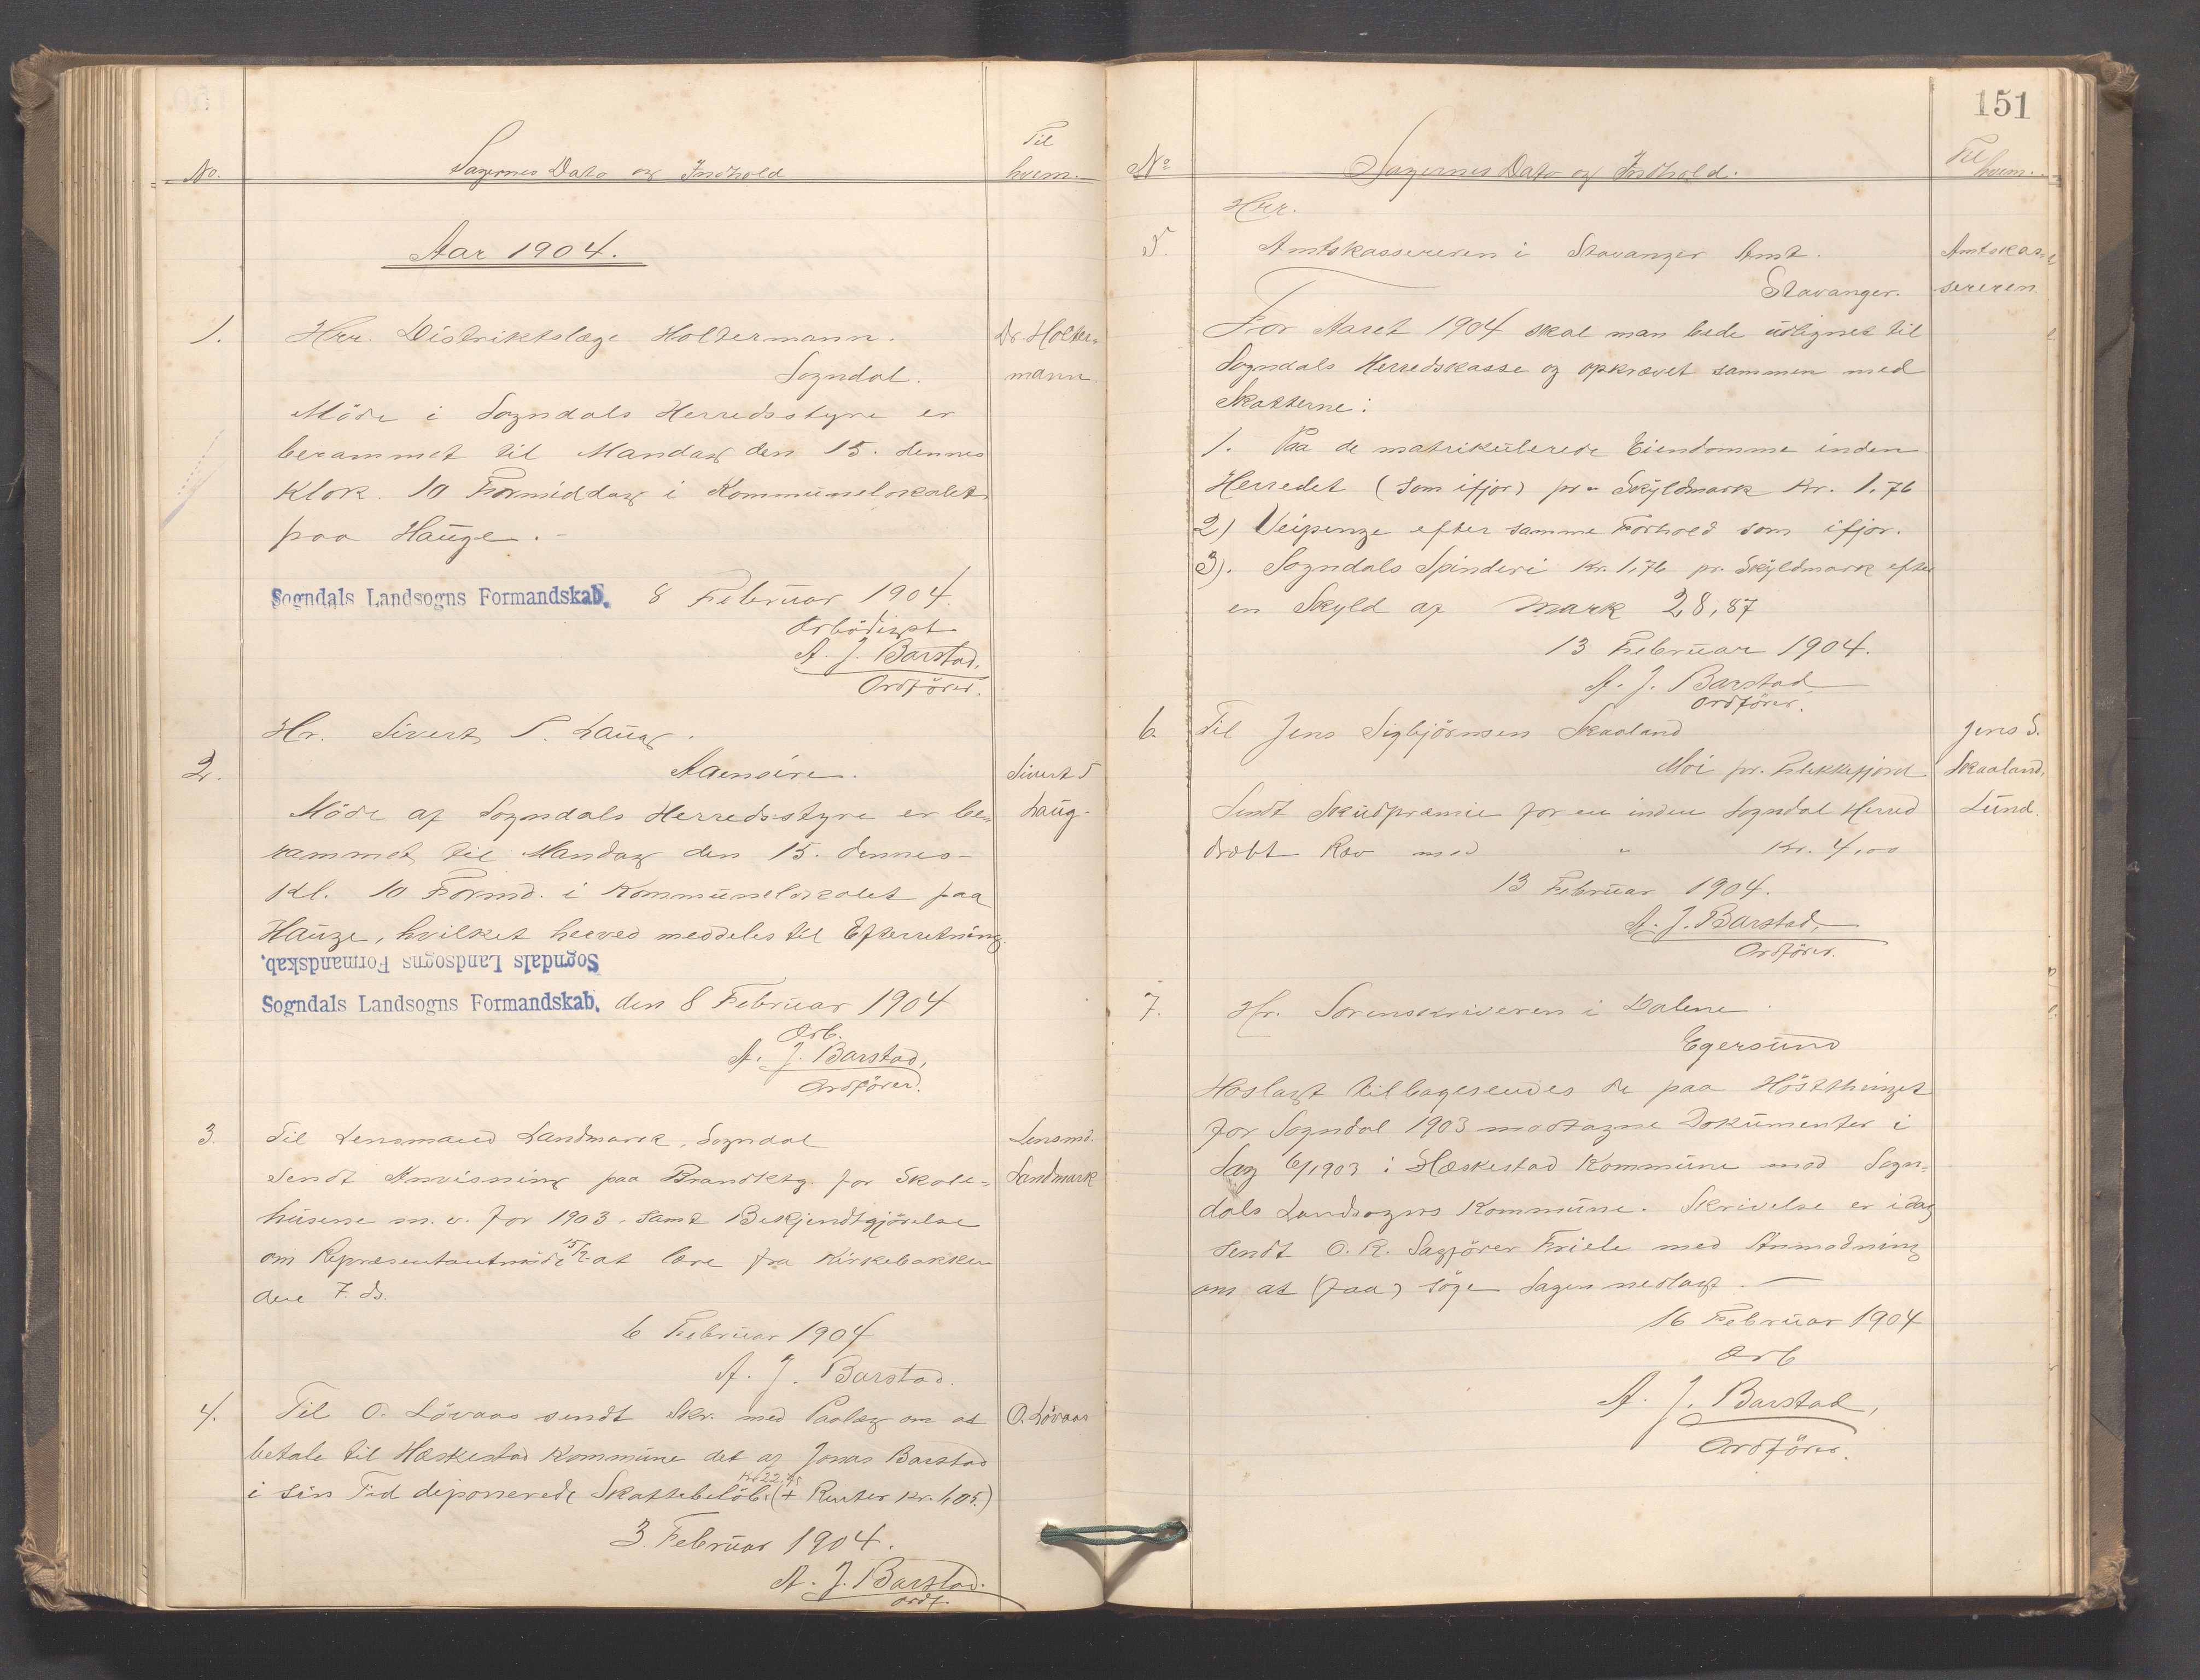 No. Sagernes Dato og Indhold Til hvem.
Aar 1904.
1. Herr. Distriktslæge Holtermann. Dr. Holter-
Sogndal. mann.
Möde i Sogndals Herredsstyre er
berammet til Mandag den 15. dennes
Klok. 10 Formiddag i Kommunelokalet
paa Hauge. -
Sogndals Landsogns Formandskab. 8 Februar 1904.
Ærbödigst
A. J. Barstad.
Ordförer.
Hr. Sivert S. Laug.
2. Aaensire. Sivert S
Möde af Sogndals Herredsstyre er be- Laug.
rammet til Mandag den 15. dennes -
Kl. 10 Formd. i Kommunelokalet paa
Hauge, hvilket herved meddeles til Efterretning.
Sogndals Landsogns Formandskab.
Sogndals Landsogns Formandskab. den 8 Februar 1904
Ærb.
A. J. Barstad,
Ordförer.
3. Til Lensmand Landmark, Sogndal Lensmd.
Sendt Anvisning paa Brandktg. for Skole- Landmark
husene m. v. for 1903. samt Bekjendtgjörelse
om Repræsentantmöde 15/2 at læse fra Kirkebakken
den 7. ds.
6 Februar 1904
A. J. Barstad.
4. Til O. Lövaas sendt Skr. med Paalæg om at O. Lövaas
betale til Hæskestad Kommune det af Jonas Barstad
i sin Tid deponerede Skattebelöb Kr 22.45 (+ Renter Kr. 1,05.)
3. Februar 1904.
A. J. Barstad.
Ordf.
151
No Sagernes Dato og Indhold. Til hvem.
Herr.
5. Amtskassereren i Stavanger Amt. Amtskas-
Stavanger. sereren
For Aaret 1904 skal man bede udlignet til
Sogndals Herredskasse og opkrævet sammen med
Skatterne:
1. Paa de matrikulerede Eiendomme inden
Herredet (som ifjor) pr. Skyldmark Kr. 1,76
2) Veipenge efter samme Forhold som ifjor.
3). Sogndals Spinderi Kr. 1,76 pr. Skyldmark efter
en Skyld af Mark 28,87
13 Februar 1904.
A. J. Barstad
Ordförer.
6. Til Jens Sigbjörnsen Skaaland Jens S.
Moi pr. Flekkefjord Skaaland,
Sendt Skudpræmie for en inden Sogndal Herred Lund.
dræbt Ræv med " Kr. 4,00
13 Februar 1904.
A. J. Barstad,
Ordförer.
7. Hr. Sorenskriveren i Dalene.
Egersund
Hoslagt tilbagesendes de paa Höstthinget
for Sogndal 1903 modtagne Dokumenter i
Sag 6/1903: Hæskestad Kommune mod Sogn-
dals Landsogns Kommune. Skrivelse er idag
sendt O. R. Sagförer Friele med Anmodning
om at (faa) söge Sagen nedlagt. -
16 Februar 1904
Ærb
A. J. Barstad,
Ordförer.